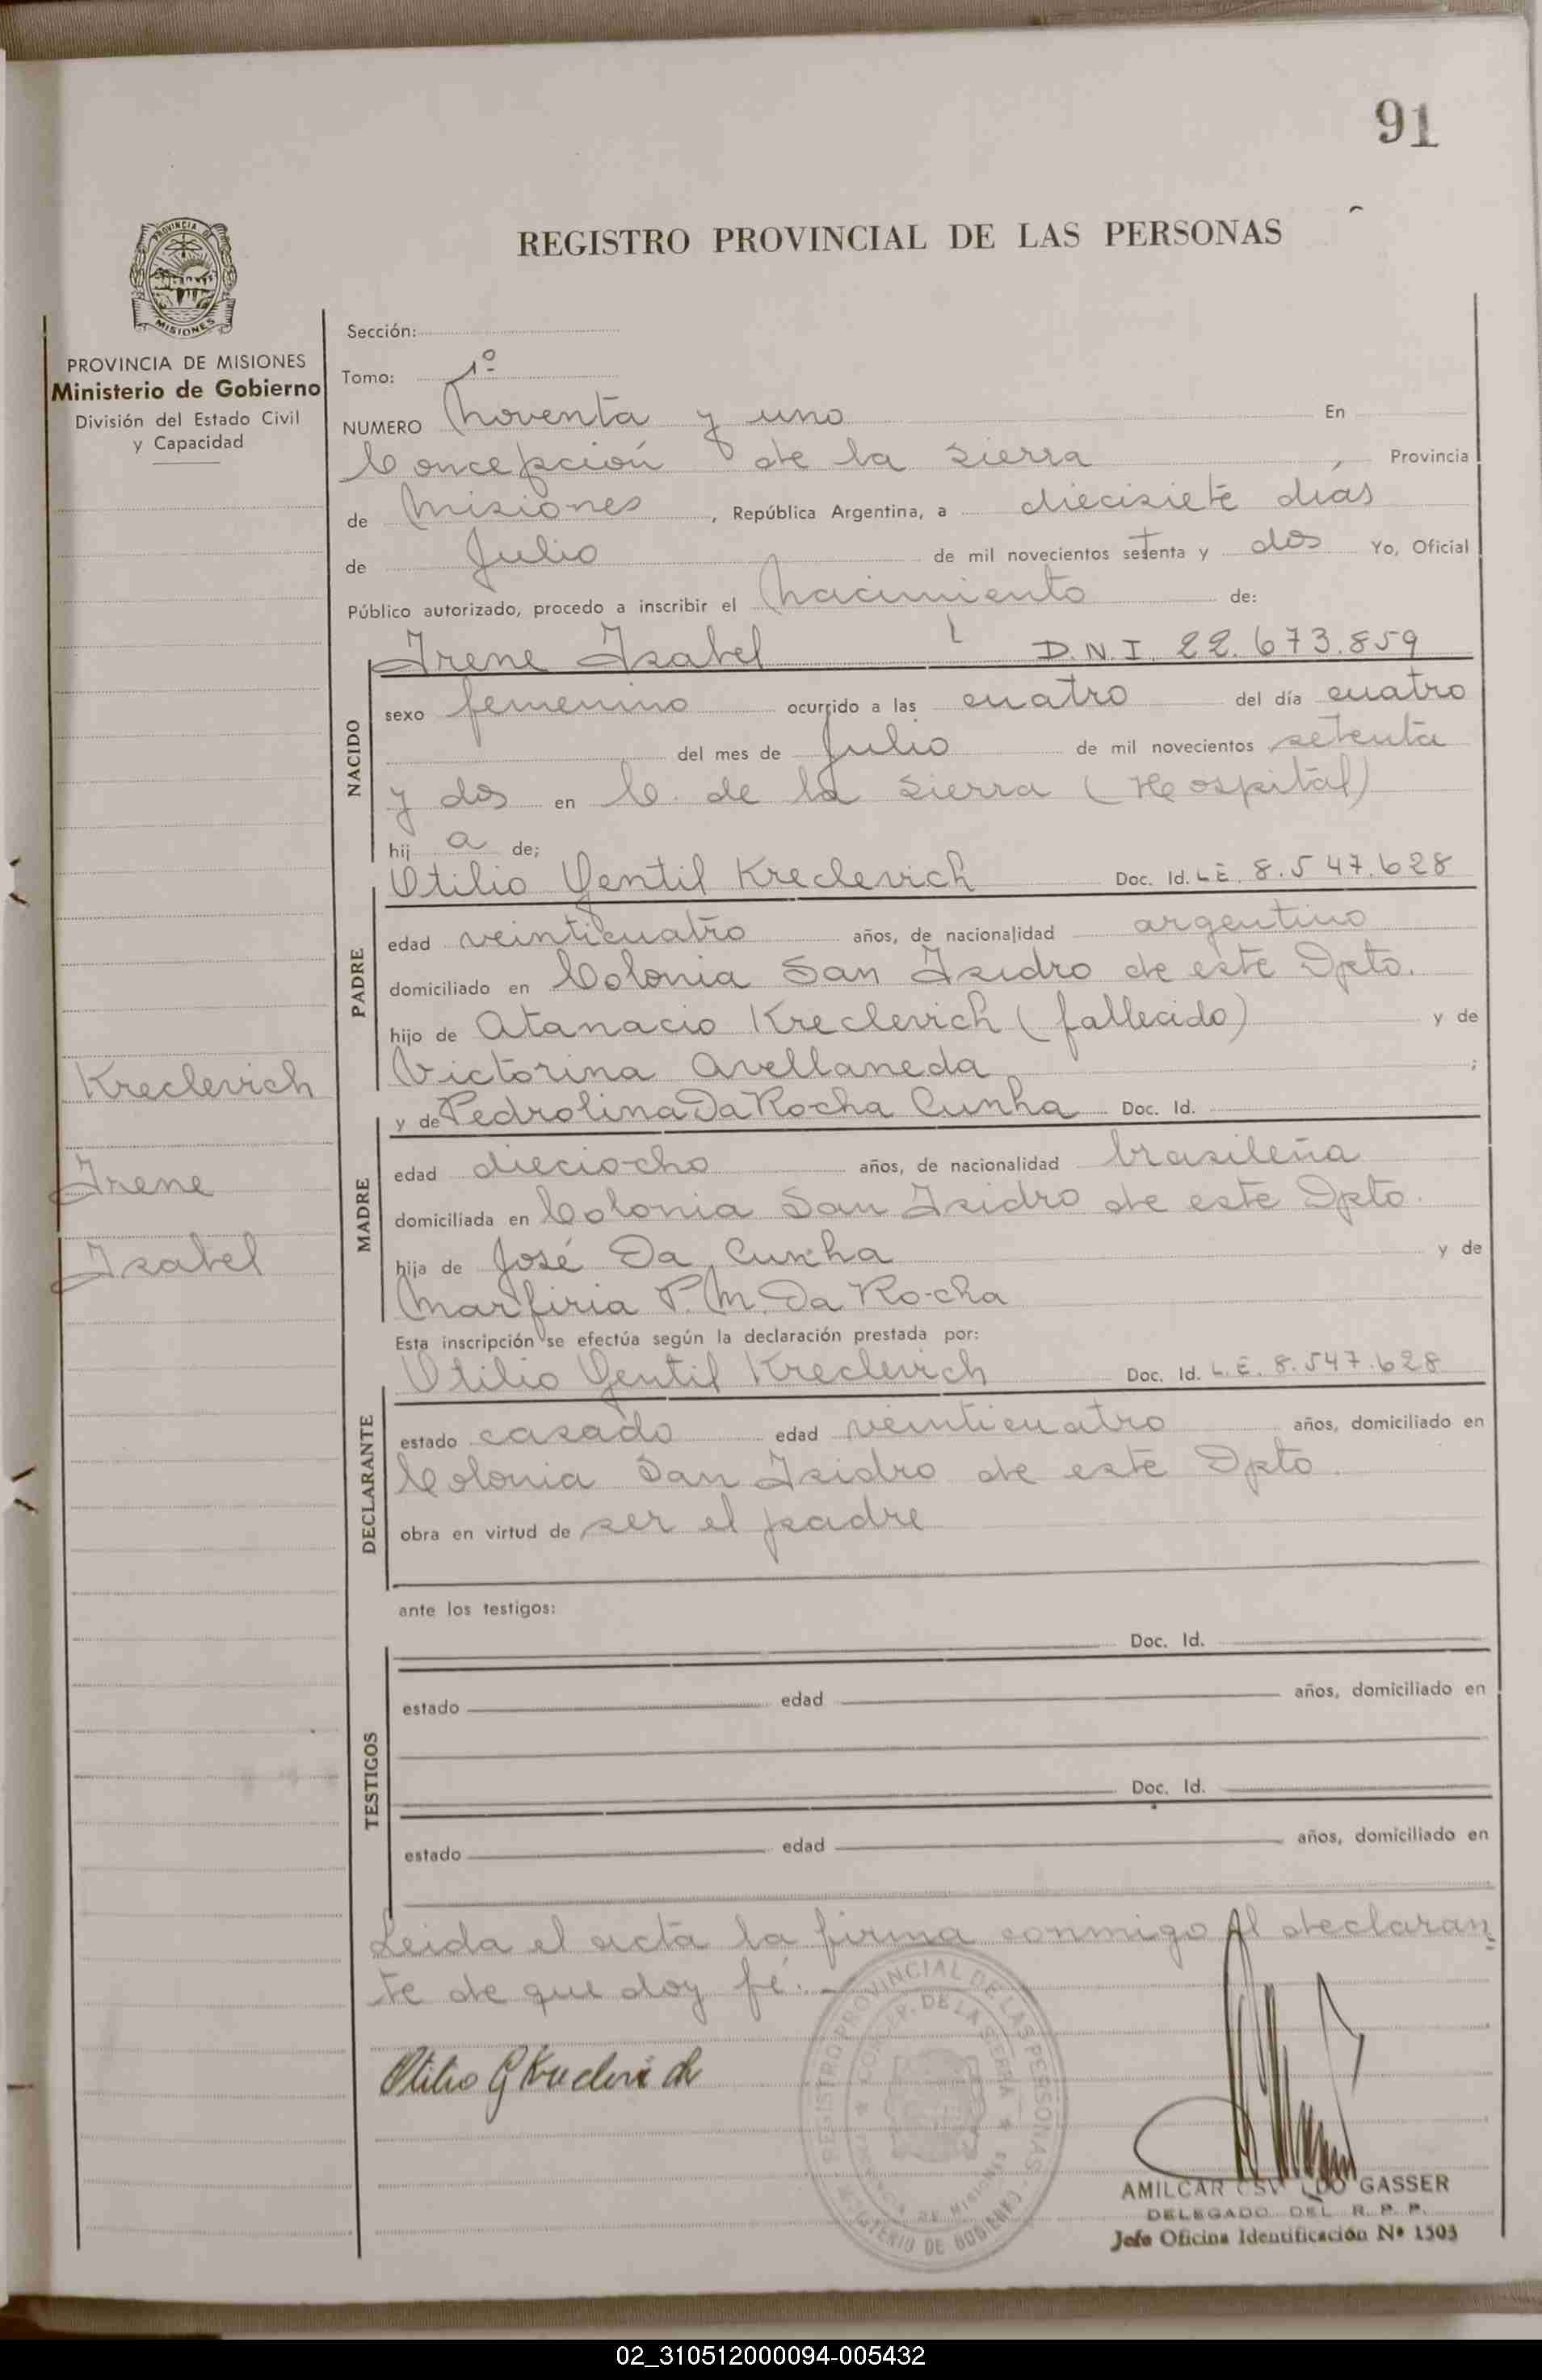 91
REGISTRO PROVINCIAL DE LAS PERSONAS
PROVINCIA DE MISIONES
MISIONES
PROVINCIA DE MISIONES
Ministerio de Gobierno
División del Estado Civil
y Capacidad
Kreclevich
Irene
Isabel
Sección:
Tomo: 1º
NUMERO Noventa y uno En
Concepción de la Sierra, Provincia
de Misiones, República Argentina, a diecisiete días
de Julio de mil novecientos setenta y dos Yo, Oficial
Público autorizado, procedo a inscribir el nacimiento de:
Irene Isabel D.N.I. 22.673.859
NACIDO
sexo femenino ocurrido a las cuatro del día cuatro
del mes de Julio de mil novecientos setenta
y dos en C. de la Sierra (Hospital)
hij a de;
Otilio Gentil Kreclevich Doc. Id. L E. 8.547.628
PADRE
edad veinticuatro años, de nacionalidad argentino
domiciliado en Colonia San Isidro de este Dpto.
hijo de Atanacio Kreclevich (fallecido) y de
Victorina Avellaneda ;
y de Pedrolina Da Rocha Cunha Doc. Id.
MADRE
edad dieciocho años, de nacionalidad brasileña
domiciliada en Colonia San Isidro de este Dpto.
hija de José Da Cunha y de
Marfiria P. M. Da Rocha
Esta inscripción se efectúa según la declaración prestada por:
Otilio Gentil Kreclevich Doc. Id. L.E. 8.547.628
DECLARANTE
estado casado edad veinticuatro años, domiciliado en
Colonia San Isidro de este Dpto.
obra en virtud de ser el padre
ante los testigos:
Doc. Id.
TESTIGOS
estado edad años, domiciliado en
Doc. Id.
estado edad años, domiciliado en
Leida el acta la firma conmigo el declaran
te de que doy fé.-
Otilio G Kreclevich
REGISTRO PROVINCIAL DE LAS PERSONAS
CONCEP. DE LA SIERRA
PROVINCIA DE MISIONES
MINISTERIO DE GOBIERNO
AMILCAR GASSER
DELEGADO DEL R. P. P.
Jefe Oficina Identificación Nº 1503
02_310512000094-005432